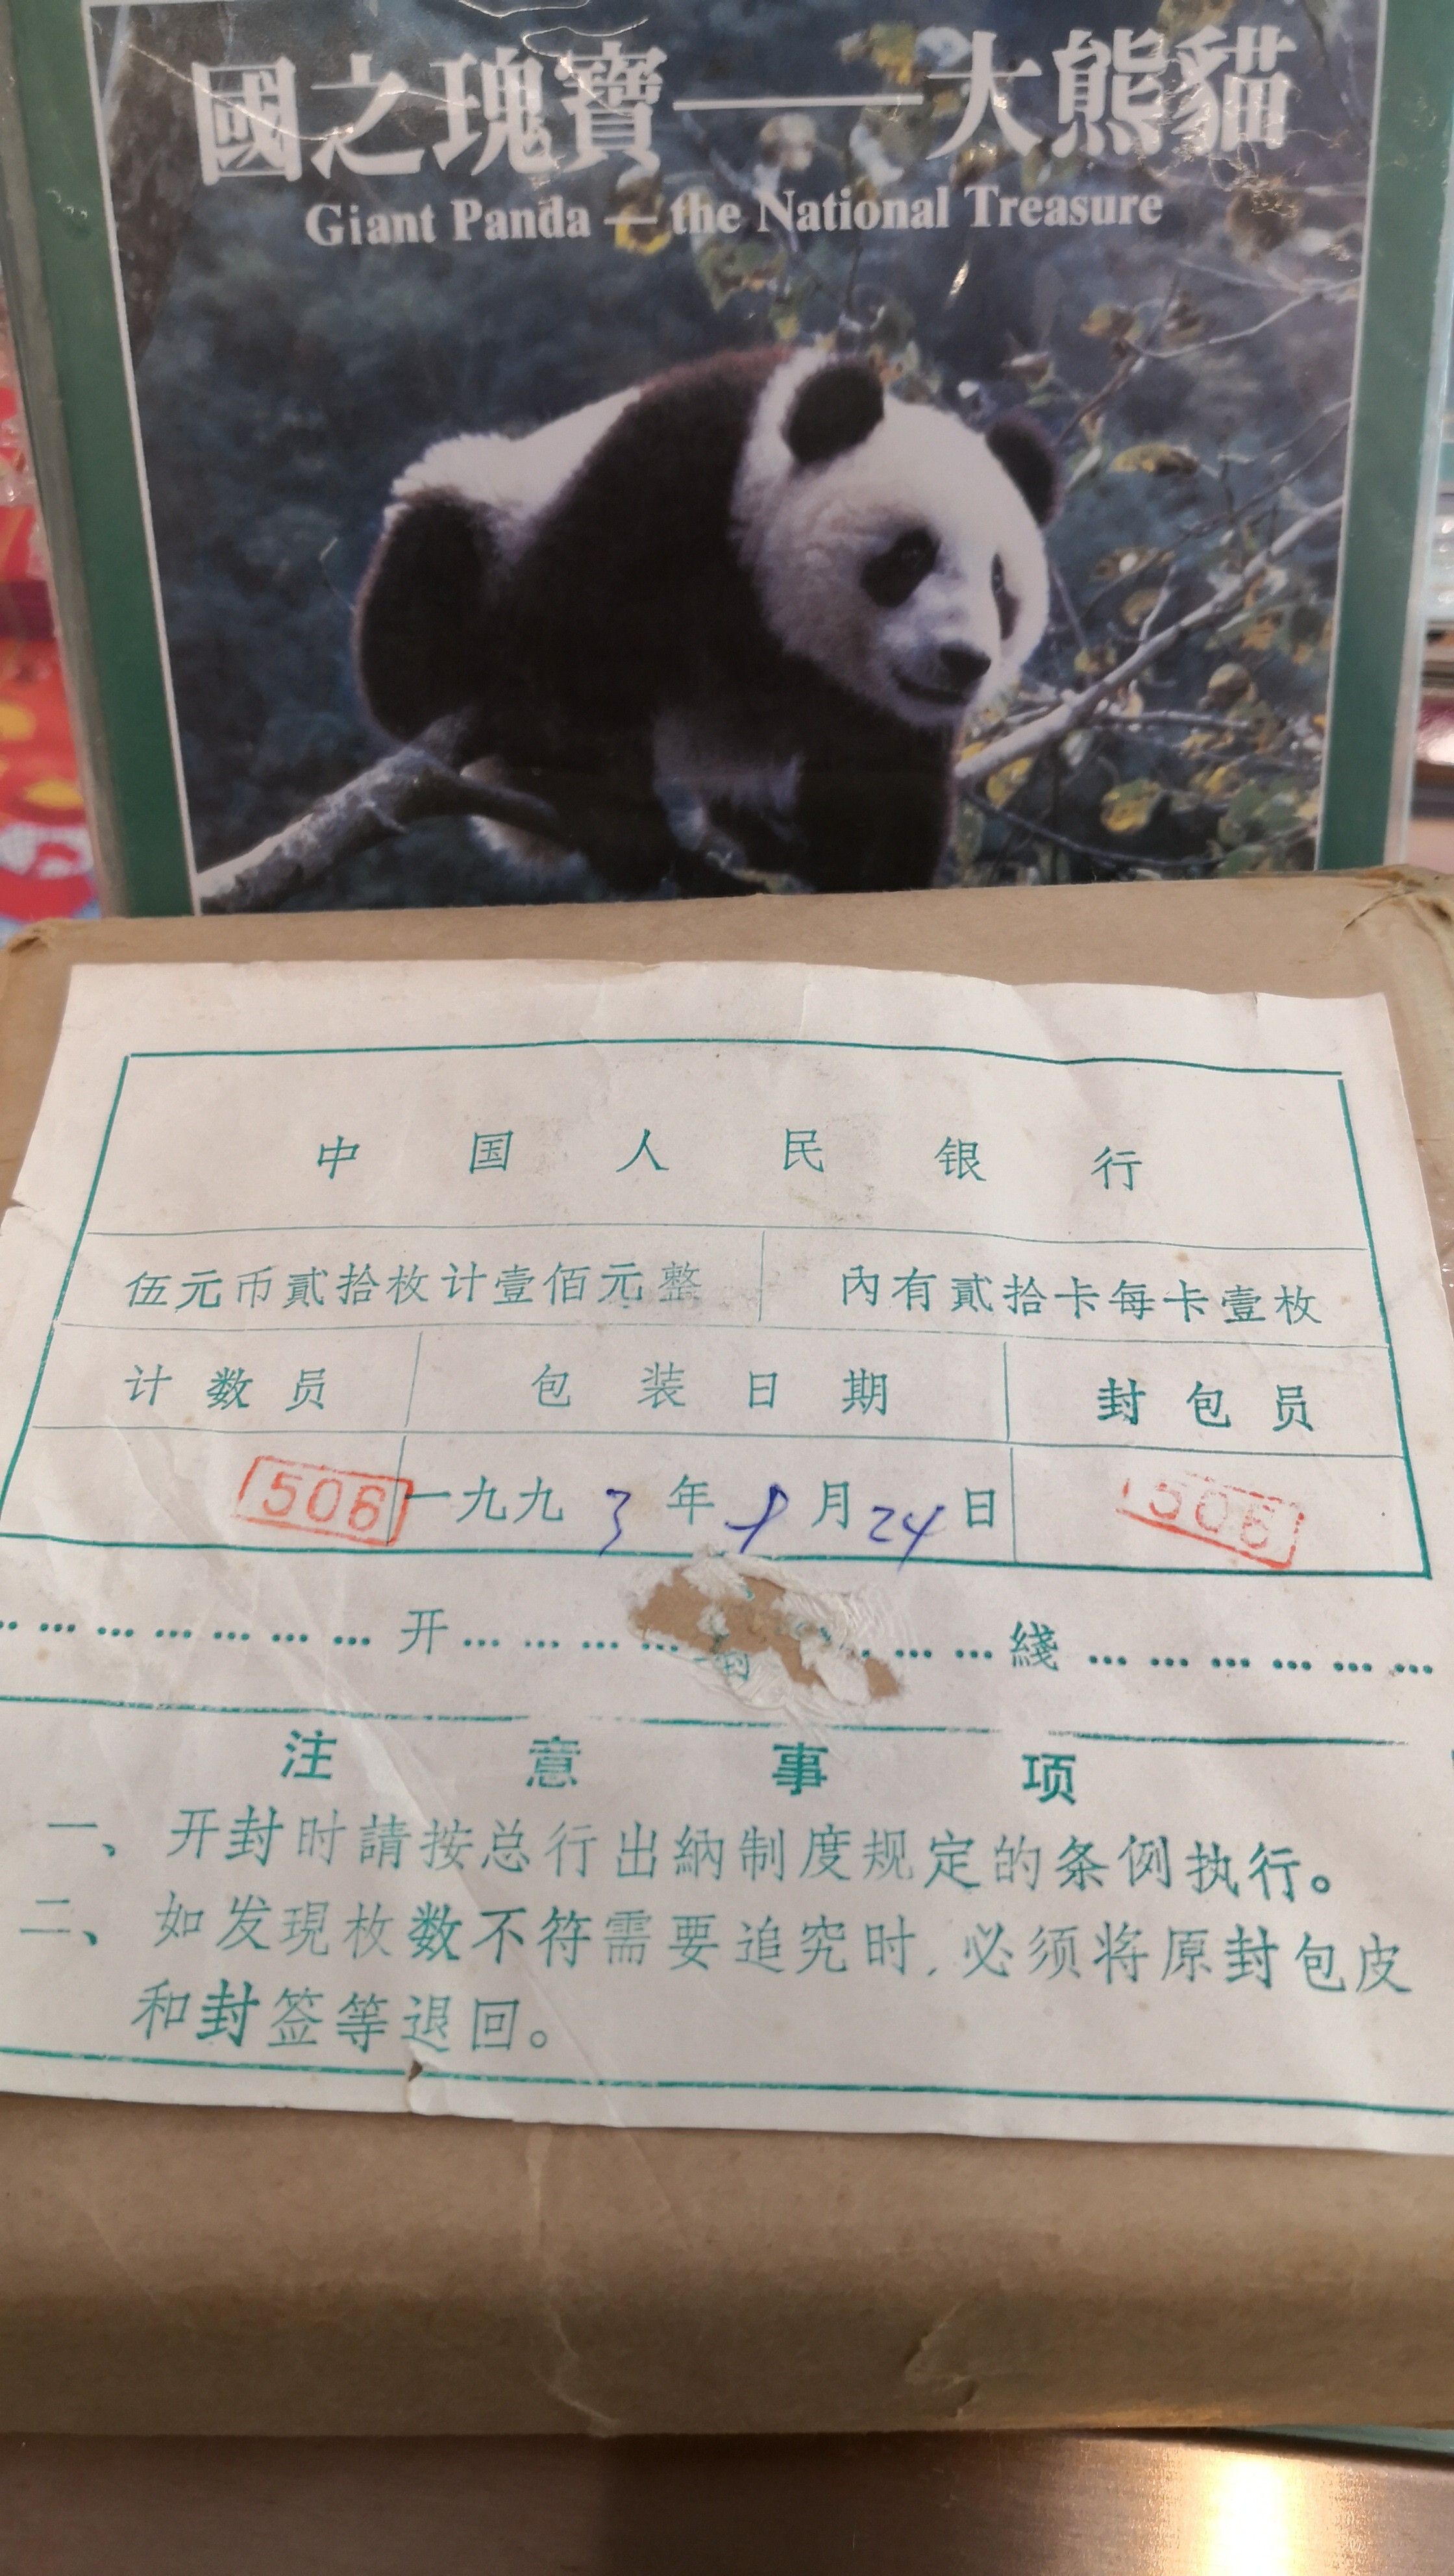 國之瑰寶——大熊貓
Giant Panda — the National Treasure
中国人民银行
伍元币貳拾枚计壹佰元整 內有貳拾卡每卡壹枚
计数员 包装日期 封包员
506 一九九3年9月24日 506
开封綫
注意事项
一、开封时請按总行出納制度规定的条例执行。
二、如发現枚数不符需要追究时,必须将原封包皮
和封签等退回。